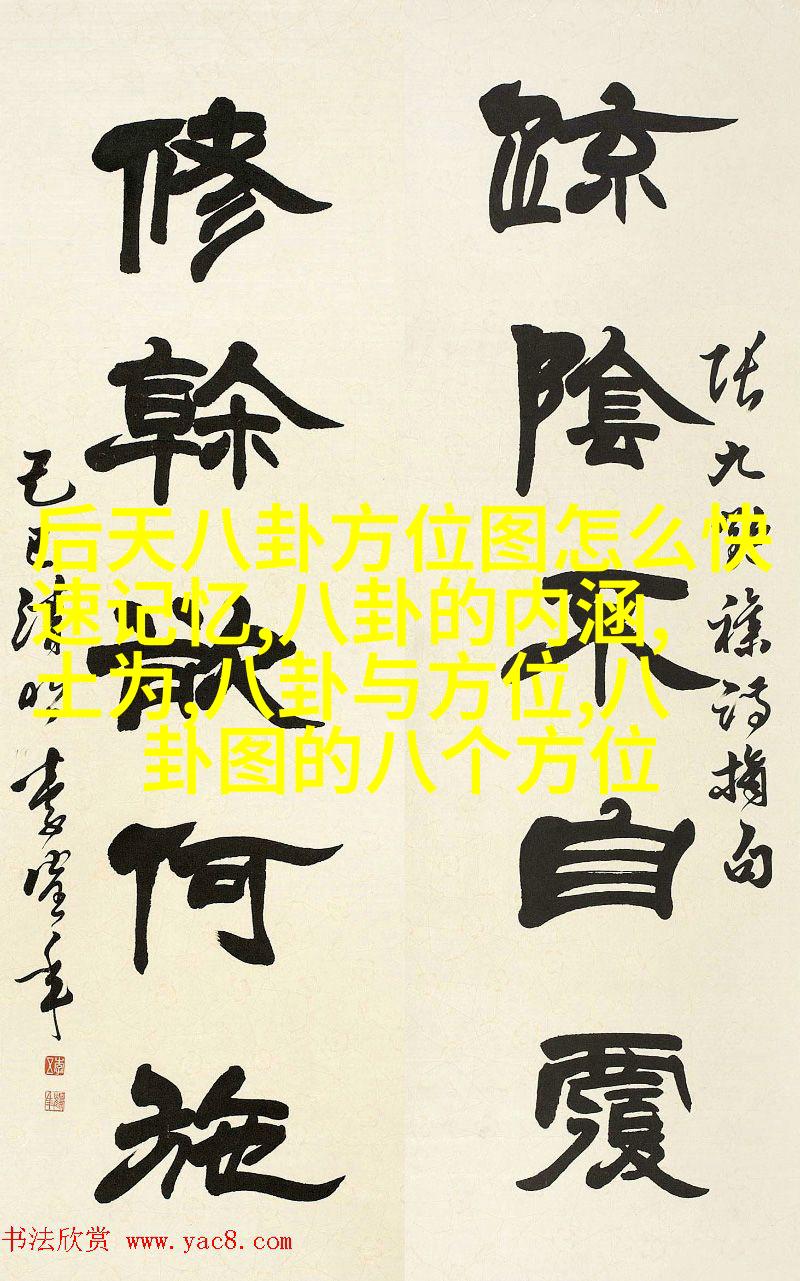 疏陰不自覆
張九齡雜詩摘句
修幹欲何施
后天八卦方位图怎么快
速记忆,八卦的内涵,
土为,八卦与方位,八
卦图的八个方位
书法欣赏 www.yac8.com